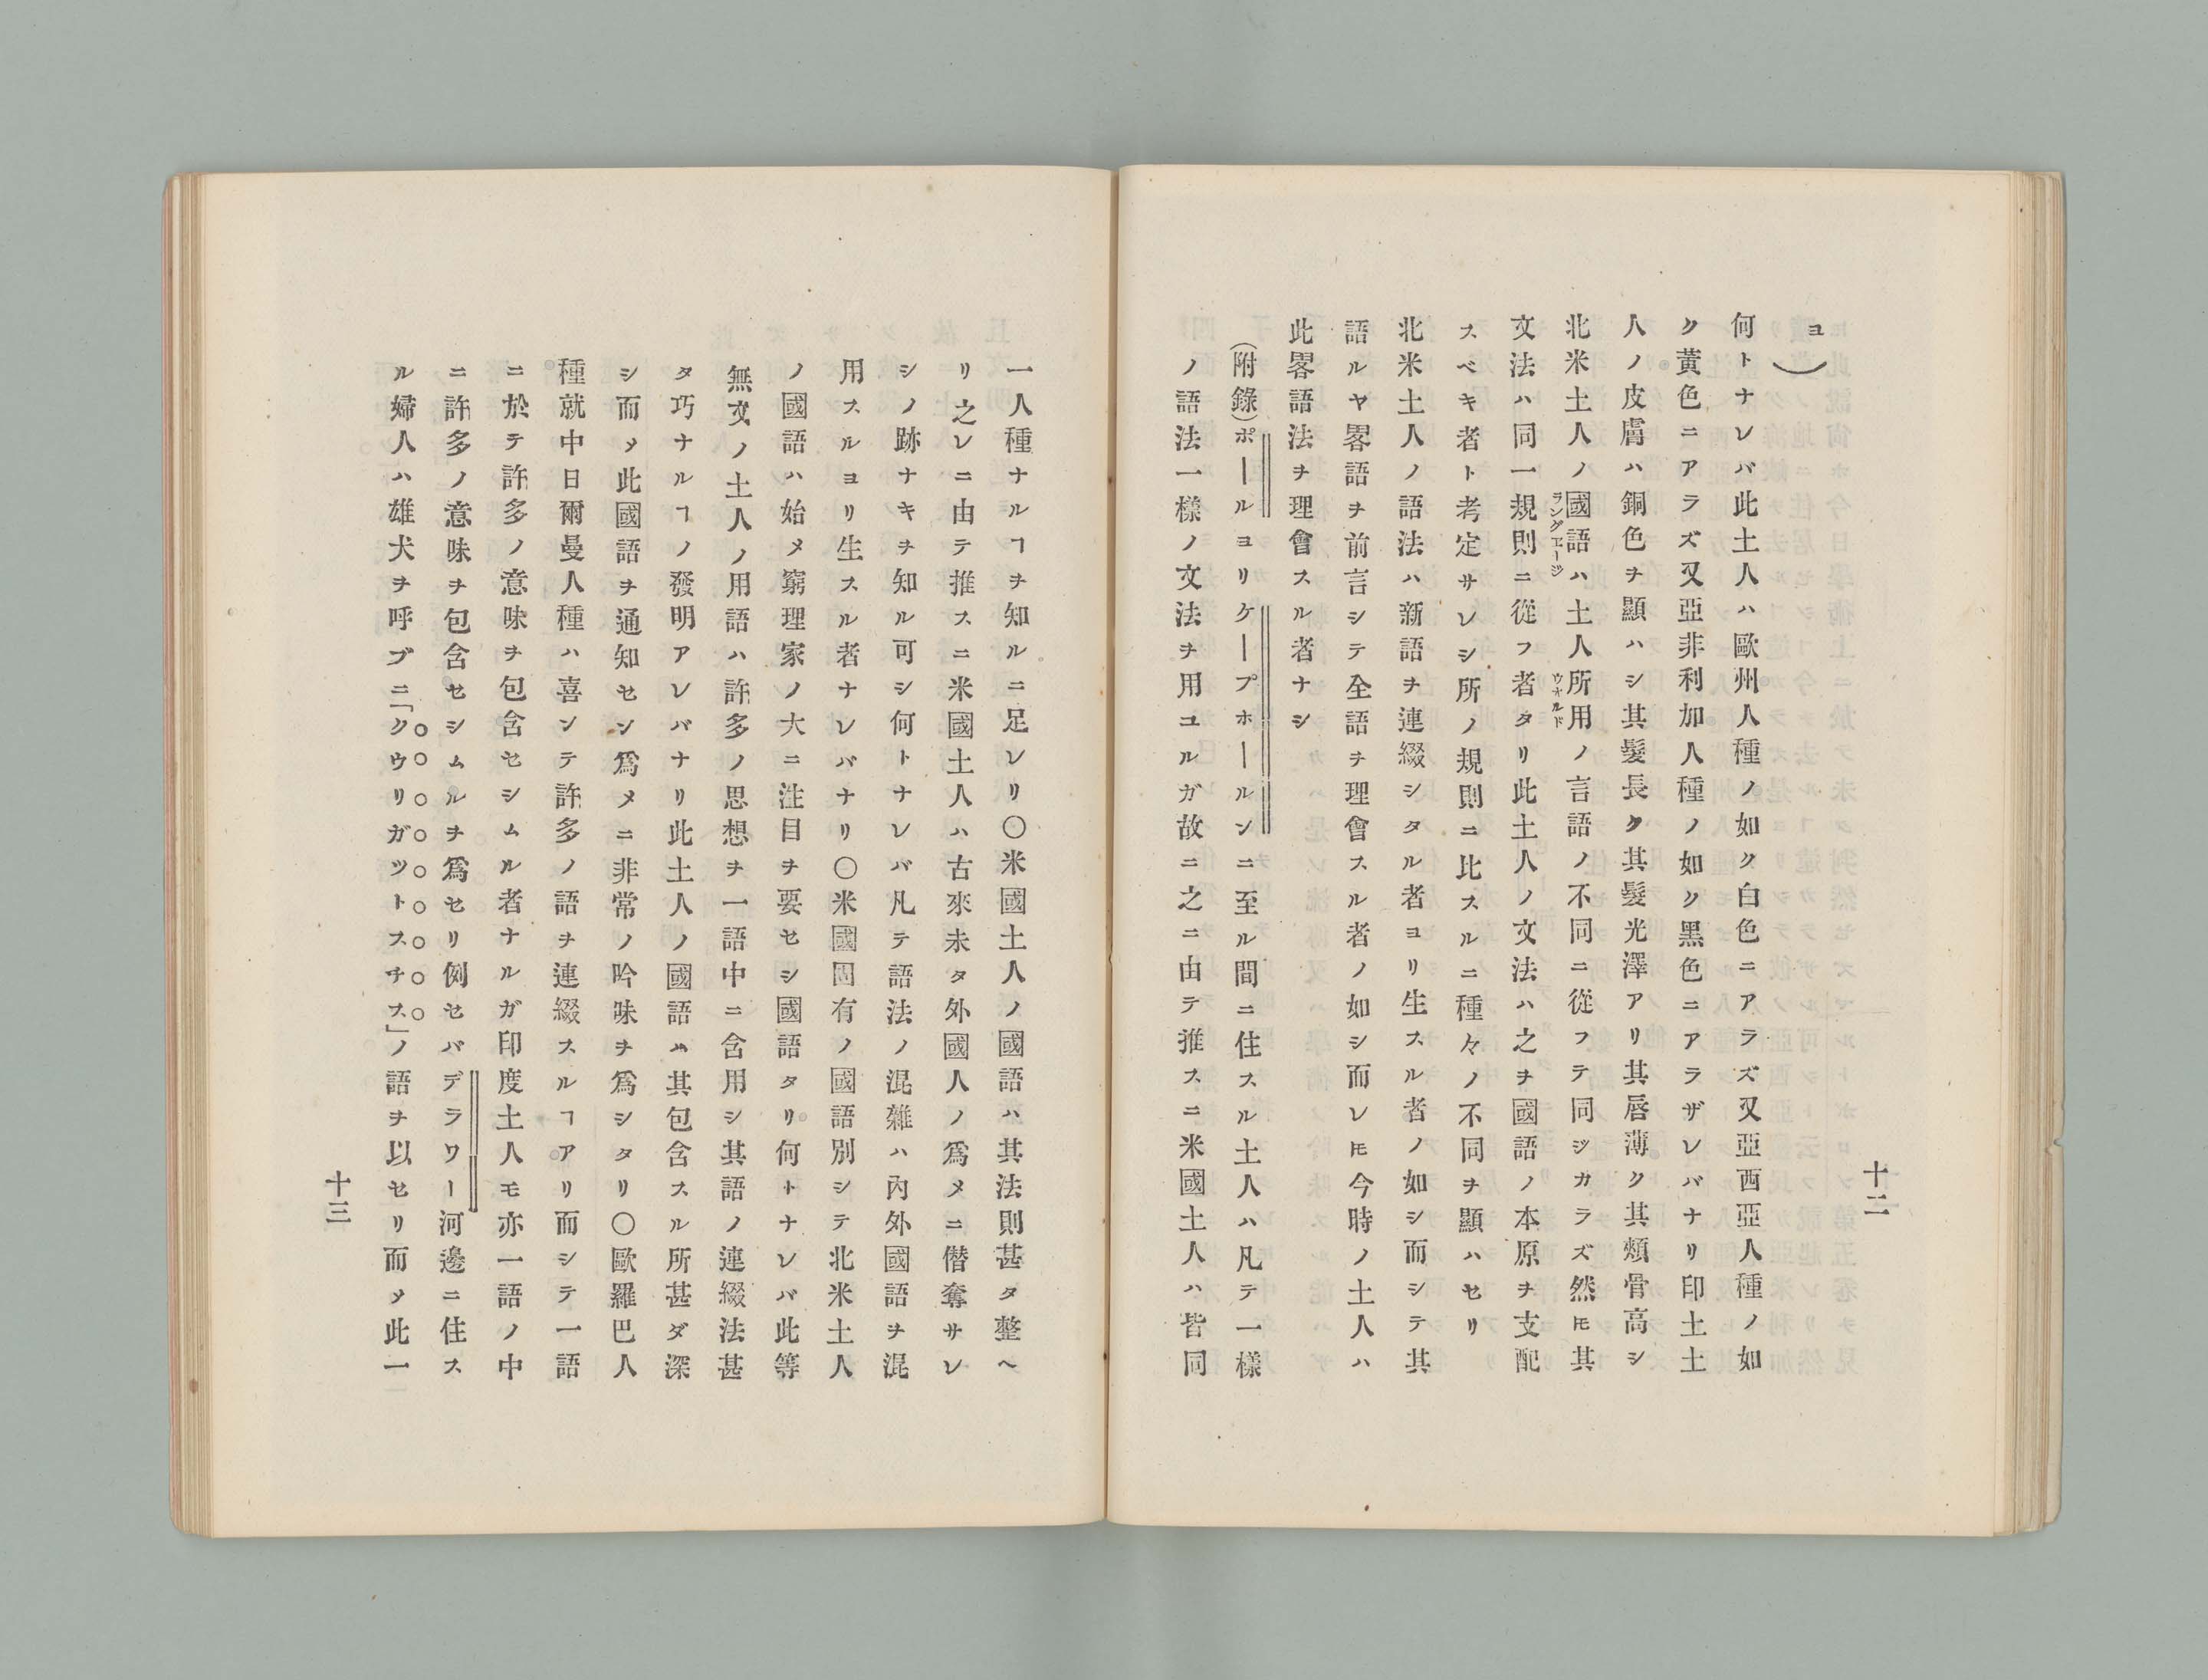 ヨ)
何トナレバ此土人ハ歐州人種ノ如ク白色ニアラズ又亞西亞人種ノ如
ク黃色ニアラズ又亞非利加人種ノ如ク黑色ニアラザレバナリ印土土
人ノ皮膚ハ銅色ヲ顯ハシ其髮長ク其髮光澤アリ其唇薄ク其頰骨高シ
北米土人ノ國語ハ土人所用ノ言語ノ不同ニ從フテ同ジカラズ然ㇳモ其
ラングェージ
ウオルド
文法ハ同一規則ニ從フ者タリ此土人ノ文法ハ之ヲ國語ノ本原ヲ支配
スベキ者ト考定サレシ所ノ規則ニ比スルニ種々ノ不同ヲ顯ハセリ
北米土人ノ語法ハ新語ヲ連綴シタル者ヨリ生スル者ノ如シ而シテ其
語ルヤ畧語ヲ前言シテ全語ヲ理會スル者ノ如シ而レ𪜈今時ノ土人ハ
此畧語法ヲ理會スル者ナシ
(附錄)ポールヨリケープホールンニ至ル間ニ住スル土人ハ凡テ一樣
ノ語法一樣ノ文法ヲ用ユルガ故ニ之ニ由テ推スニ米國土人ハ皆同
十二
一人種ナルヿヲ知ルニ足レリ〇米國土人ノ國語ハ其法則甚タ整ヘ
リ之レニ由テ推スニ米國土人ハ古來未タ外國人ノ爲メニ僣奪サレ
シノ跡ナキヲ知ル可シ何トナレバ凡テ語法ノ混雜ハ內外國語ヲ混
用スルヨリ生スル者ナレバナリ〇米國固有ノ國語別シテ北米土人
ノ國語ハ始メ窮理家ノ大ニ注目ヲ要セシ國語タリ何トナレバ此等
無文ノ土人ノ用語ハ許多ノ思想ヲ一語中ニ含用シ其語ノ連綴法甚
タ巧ナルヿノ發明アレバナリ此土人ノ國語ハ其包含スル所甚ダ深
シ而メ此國語ヲ通知セン爲メニ非常ノ吟味ヲ爲シタリ〇歐羅巴人
種就中日爾曼人種ハ喜ンテ許多ノ語ヲ連綴スルヿアリ而シテ一語
ニ於テ許多ノ意味ヲ包含セシムル者ナルガ印度土人モ亦一語ノ中
ニ許多ノ意味ヲ包含セシムルヲ爲セリ例セバデラワー河邊ニ住ス
ル婦人ハ雄犬ヲ呼ブニ「クウリガツトスチス」ノ語ヲ以セリ而メ此一
十三